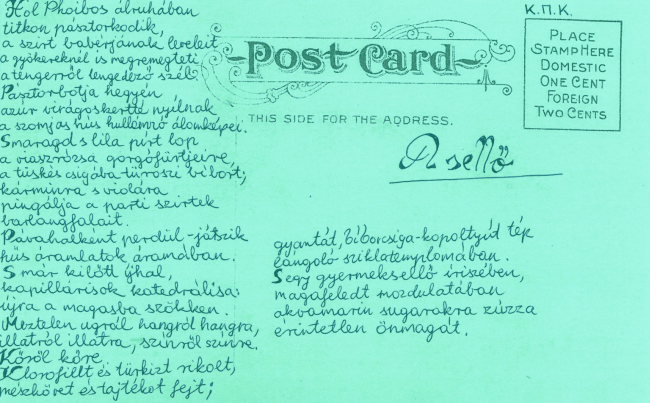 Hol Phoibos ábruhában
titkon pásztorkodik,
a szirt babérjának leveleit
a gyökereknél is megremegteti
a tengerről lengedező szél.
Pásztorbotja hegyén
azúr virágoskertté nyílnak
a szomjas hús hullámzó álomképei.
Smaragd s lila pírt lop
a viaszrózsa gorgófürtjeire,
a tüskés csigába türoszi bíbort;
kárminra s violára
pingálja a parti szirtek
barlangfalait.
Pávahalként perdül-játszik
hűs áramlatok áramában.
S már kilőtt íjhal,
kapillárisok katedrálisa:
újra a magasba szökken.
Meztelen ugrál hangról hangra,
illatról illatra, színről színre.
Kőről kőre.
Klorofillt és türkizt rikolt,
mészkövet és tajtékot fejt;
К.П.К.
Post Card
PLACE
STAMP HERE
DOMESTIC
ONE CENT
FOREIGN
TWO CENTS
THIS SIDE FOR THE ADDRESS.
A sellő
gyantát, bíborcsiga-kopoltyúd tép
lángoló sziklatemplomában.
S egy gyermeksellő íriszében,
magafeledt mozdulatában
akvamarin sugarakra zúzza
érintetlen önmagát.